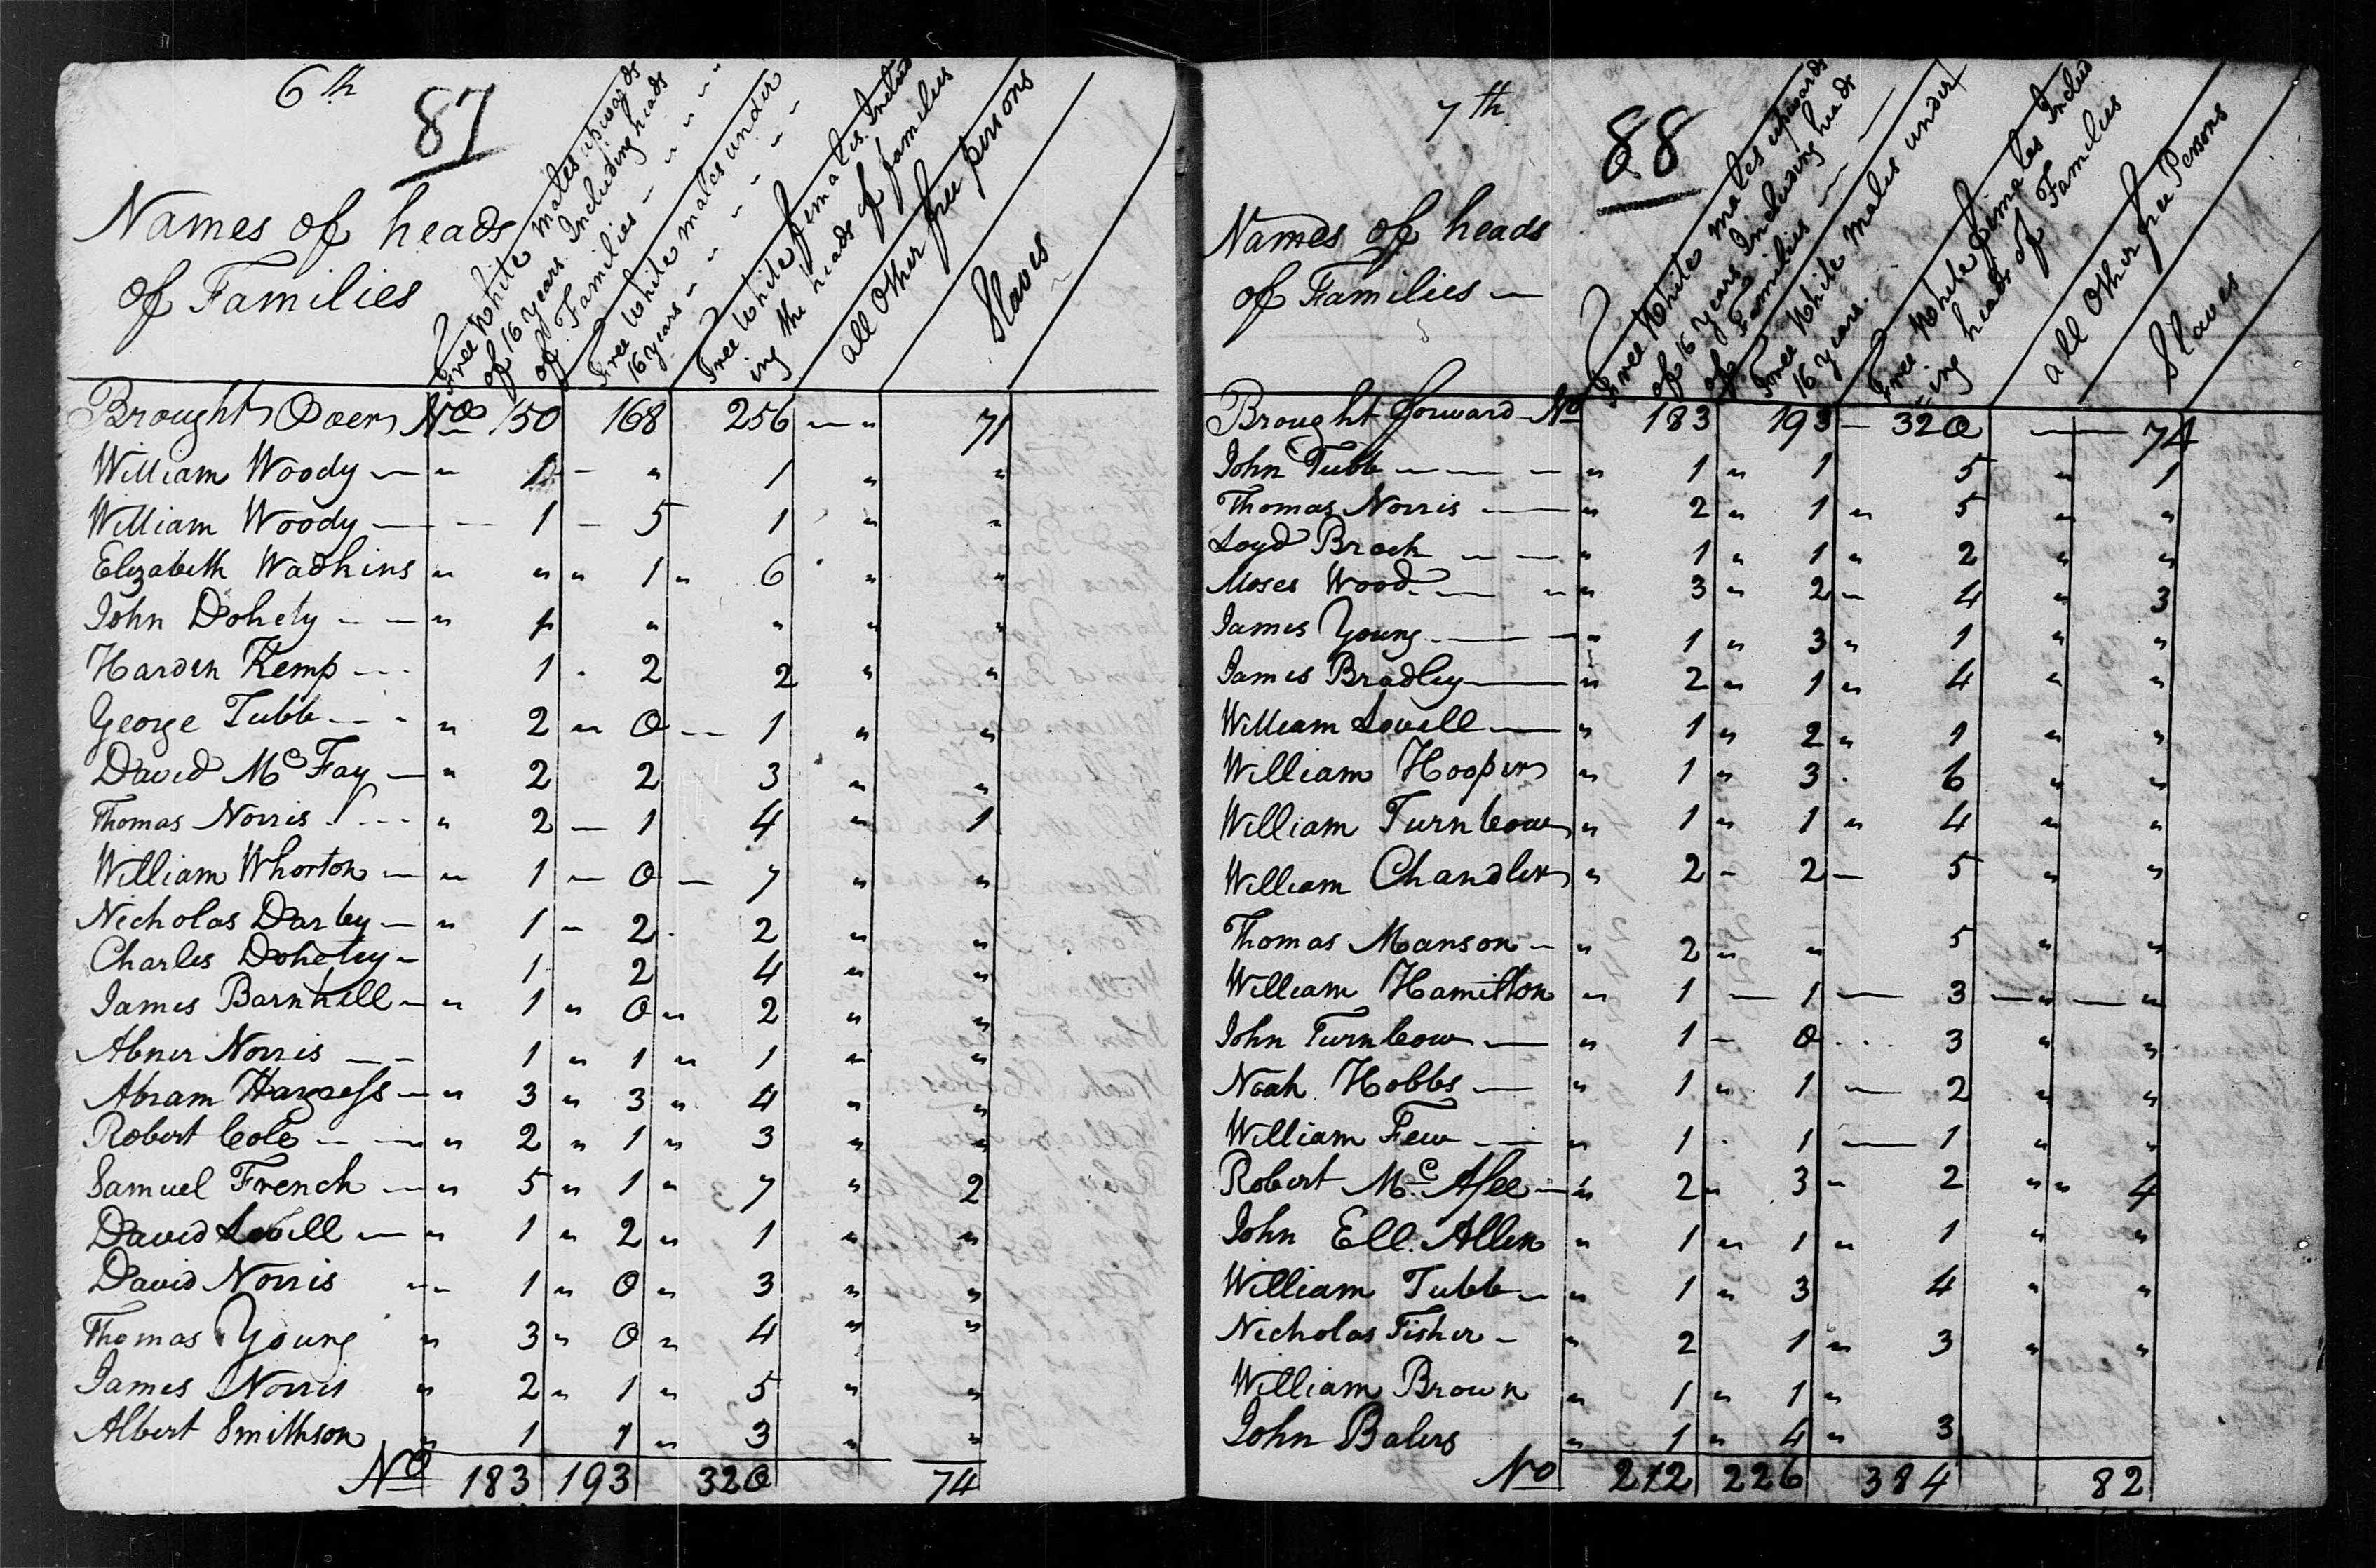 6th
87
Names of heads
of Families
Free White males upwards
of 16 years Including heads
of Families
Free White males under
16 years
Free White females Includ
ing the heads of families
all Other free persons
Slaves
Brought Over No 150 168 256 — " 71
William Woody — " 1 — " 1 " "
William Woody — — 1 — 5 1 " "
Elizabeth Wadkins " " " 1 " 6 " "
John Dohety — — " 1 " " " "
Harden Kemp — 1 . 2 2 " "
George Tubb — - " 2 " 0 — 1 " "
David Mc Fay — " 2 2 3 " "
Thomas Norris - - - " 2 — 1 4 " 1
William Whorton — " 1 — 0 — 7 " "
Necholas Darby — " 1 — 2 . 2 " "
Charles Dohetey — 1 2 4 " "
James Barnhill — " 1 " 0 " 2 " "
Abner Norris — — 1 " 1 " 1 " "
Abram Hargess — " 3 " 3 " 4 " "
Robert Cole — — " 2 " 1 " 3 " "
Samuel French — " 5 " 1 " 7 " 2
David Lovill — " 1 " 2 " 1 " "
David Norris " 1 " 0 " 3 " "
Thomas Young " 3 " 0 " 4 " "
James Norris " 2 " 1 " 5 " "
Albert Smithson " 1 1 " 3 " "
No 183 193 320 74
7th
88
Names of heads
of Families —
Free White males upwards
of 16 years Including heads
of Families
Free White Males under
16 years.
Free White females Includ
ing heads of Families
all Other free Persons
Slaves
Brought forward No 183 193 — 320 — 74
John Tubb — — — " 1 " 1 5 " 1
Thomas Norris — " 2 " 1 " 5 " "
Loyd Brock — — " 1 " 1 " 2 " "
Moses Wood — " 3 " 2 — 4 " 3
James Young — " 1 " 3 " 1 " "
James Bradley — " 2 " 1 " 4 " "
William Lovell — " 1 " 2 " 1 " "
William Hooper " 1 " 3 . 6 " "
William Turnbow " 1 " 1 " 4 " "
William Chandler " 2 — 2 — 5 " "
Thomas Manson — " 2 " " 5 " "
William Hamilton " 1 — 1 — 3 — " — "
John Turnbow — " 1 — 0 . . . 3 " "
Noah Hobbs — " 1 " 1 — 2 " "
William Few — " 1 . 1 — 1 " "
Robert Mc Afee — " 2 " 3 " 2 " " 4
John Ell. Allen " 1 " 1 " 1 " "
William Tubb — " 1 " 3 4 " "
Nicholas Fisher — " 2 1 " 3 " "
William Brown " 1 " 1 "
John Balers " 1 " 4 " 3
No 212 226 384 82